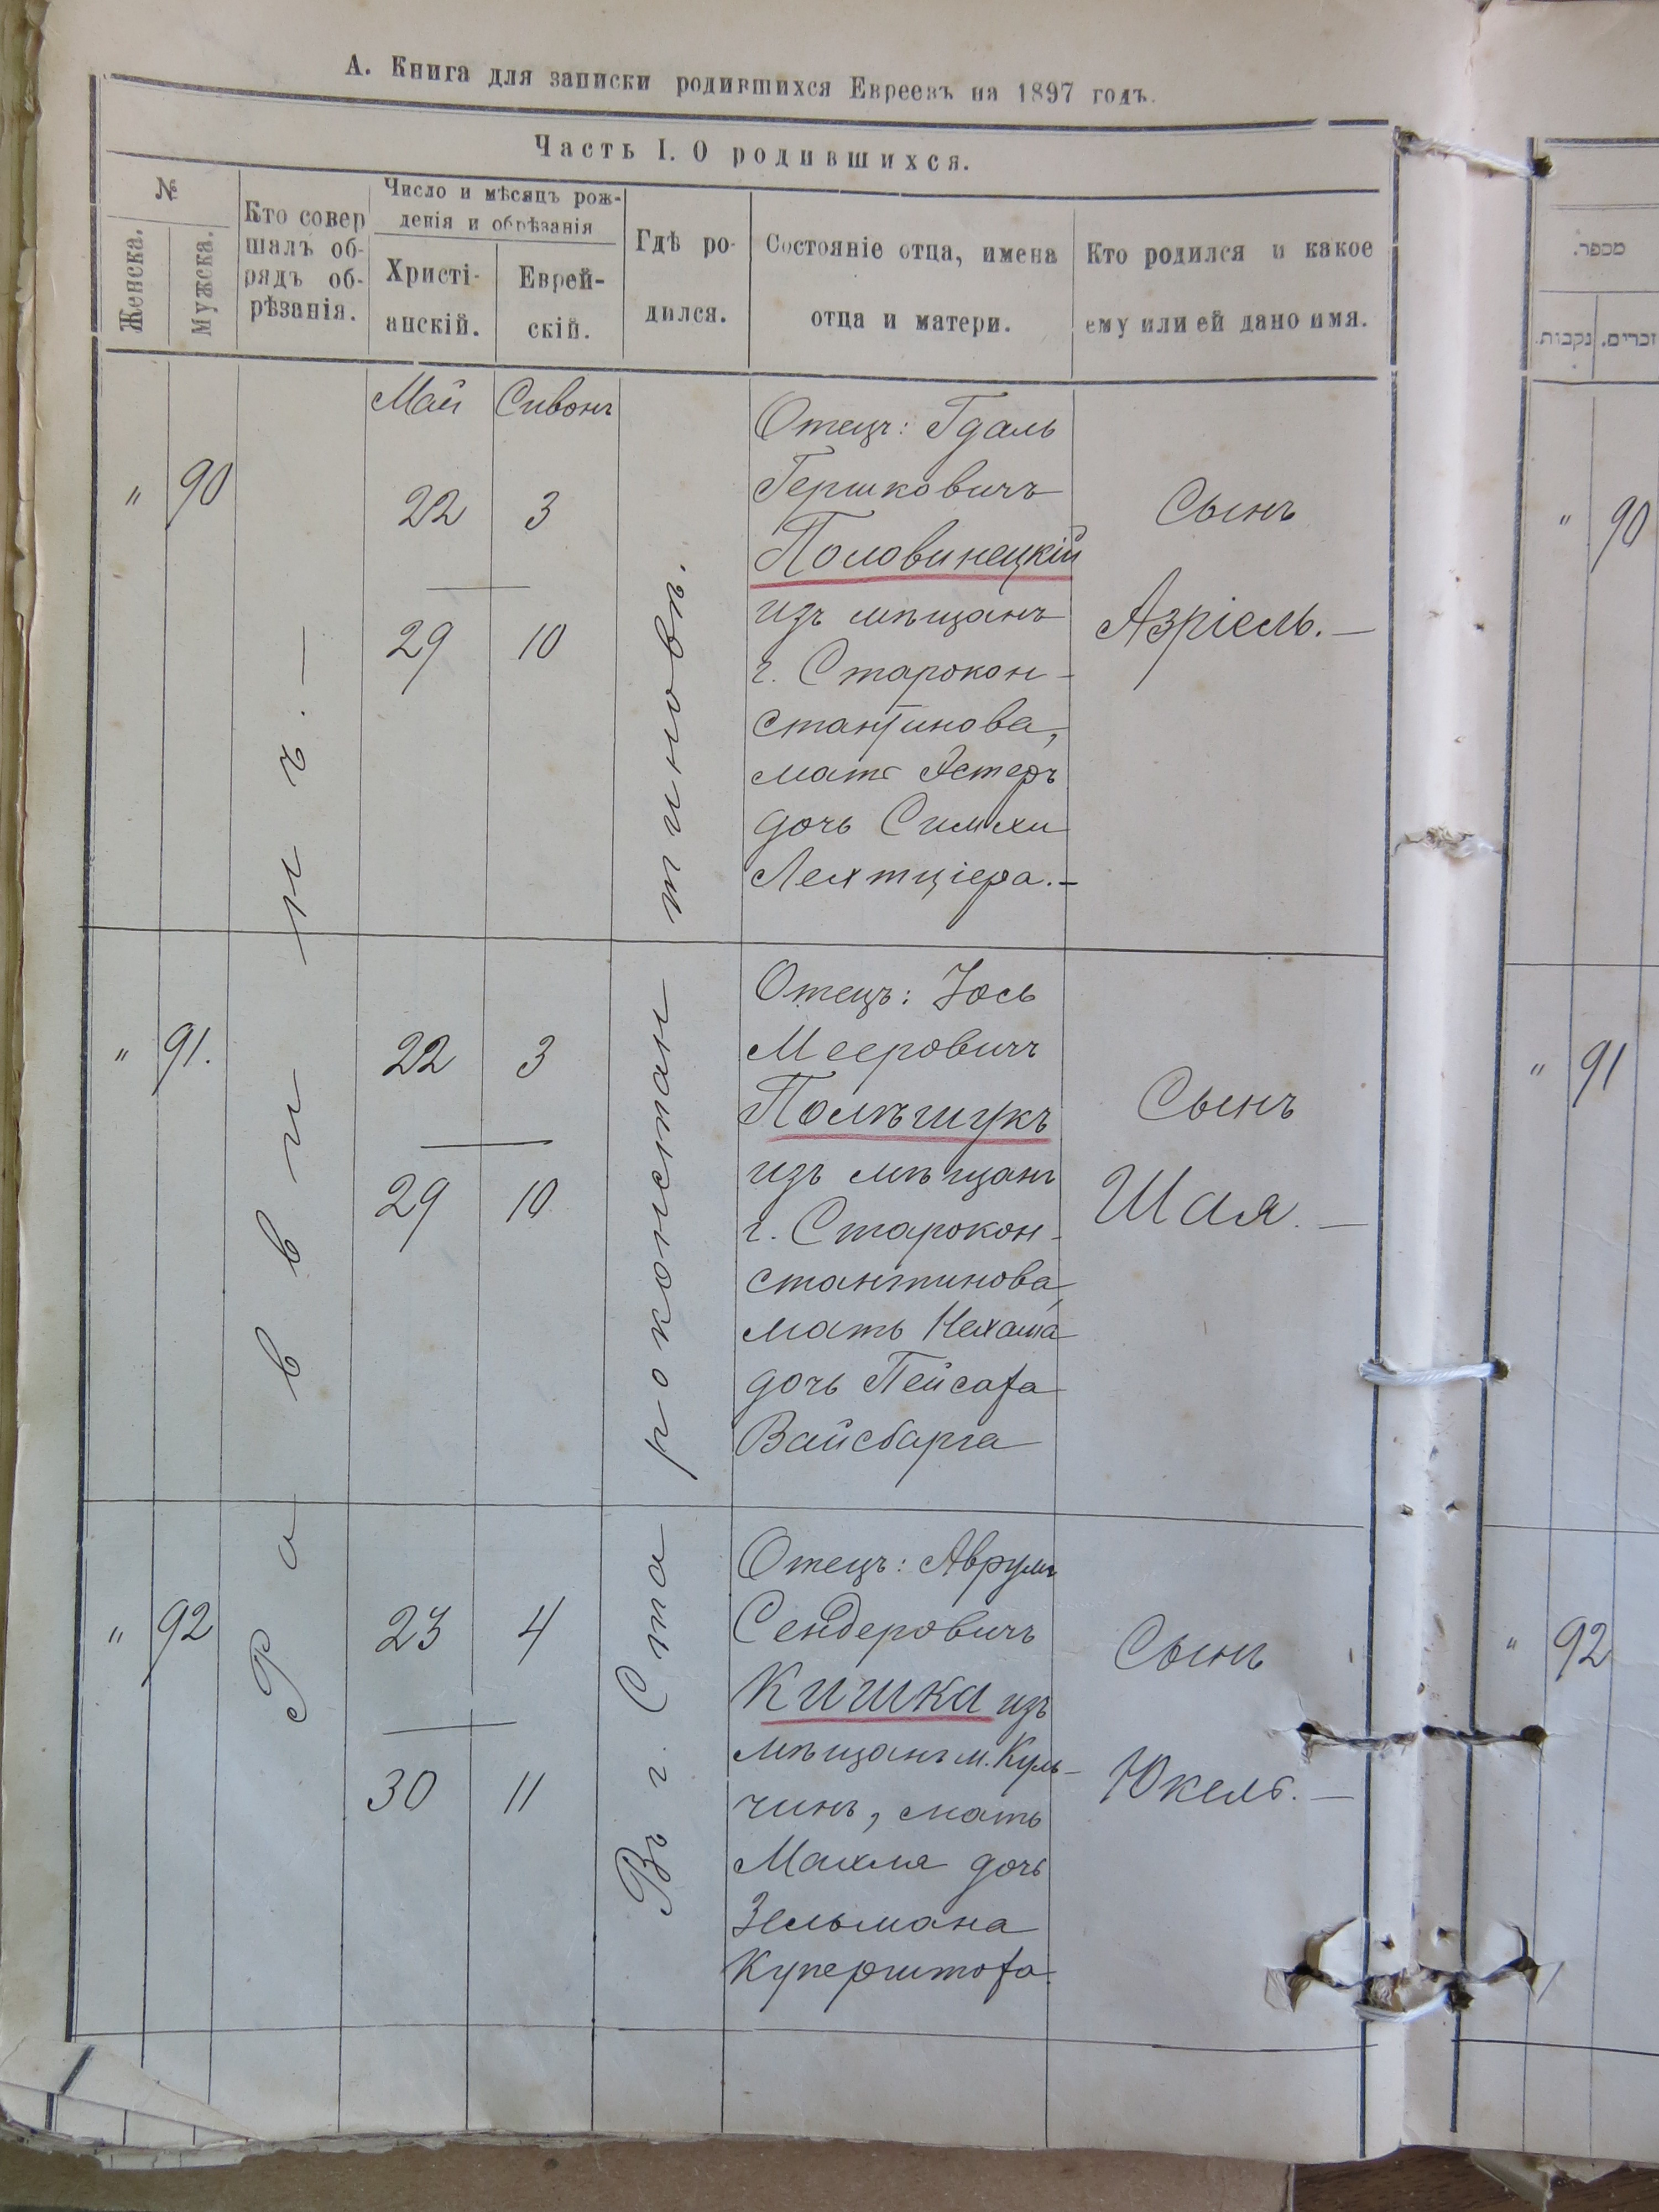 А. Книга для записки родившихся Евреевъ на 1897 годъ.
Часть I. О родившихся.
№
Женска.
Мужска.
Кто совер
шалъ об-
рядъ об-
рѣзанія.
Число и мѣсяцъ рож-
денія и обрѣзанія
Христі-
анскій.
Еврей-
скій.
Гдѣ ро-
дился.
Состояніе отца, имена
отца и матери.
Кто родился и какое
ему или ей дано имя.
מספר.
נקבות.
זכרים.
Раввинъ. —
Въ г. Староконстантиновѣ.
Май
Сивонъ
" 90
22 3
29 10
Отецъ: Гдаль
Гершковичъ
Половинецкій
изъ мѣщанъ
г. Старокон-
стантинова,
мать Эстеръ
дочь Симхи
Лехтціера. —
Сынъ
Азріель. —
" 90
" 91.
22 3
29 10
Отецъ: Іось
Мееровичъ
Полѣшукъ
изъ мѣщанъ
г. Старокон-
стантинова,
мать Нехама
дочь Пейсаха
Вайсбарга
Сынъ
Шая. —
" 91
" 92
23 4
30 11
Отецъ: Аврумъ
Сендеровичъ
Кишка изъ
мѣщанъ м. Куль-
чинъ, мать
Махля дочь
Зельмана
Сынъ
Юкель. —
" 92